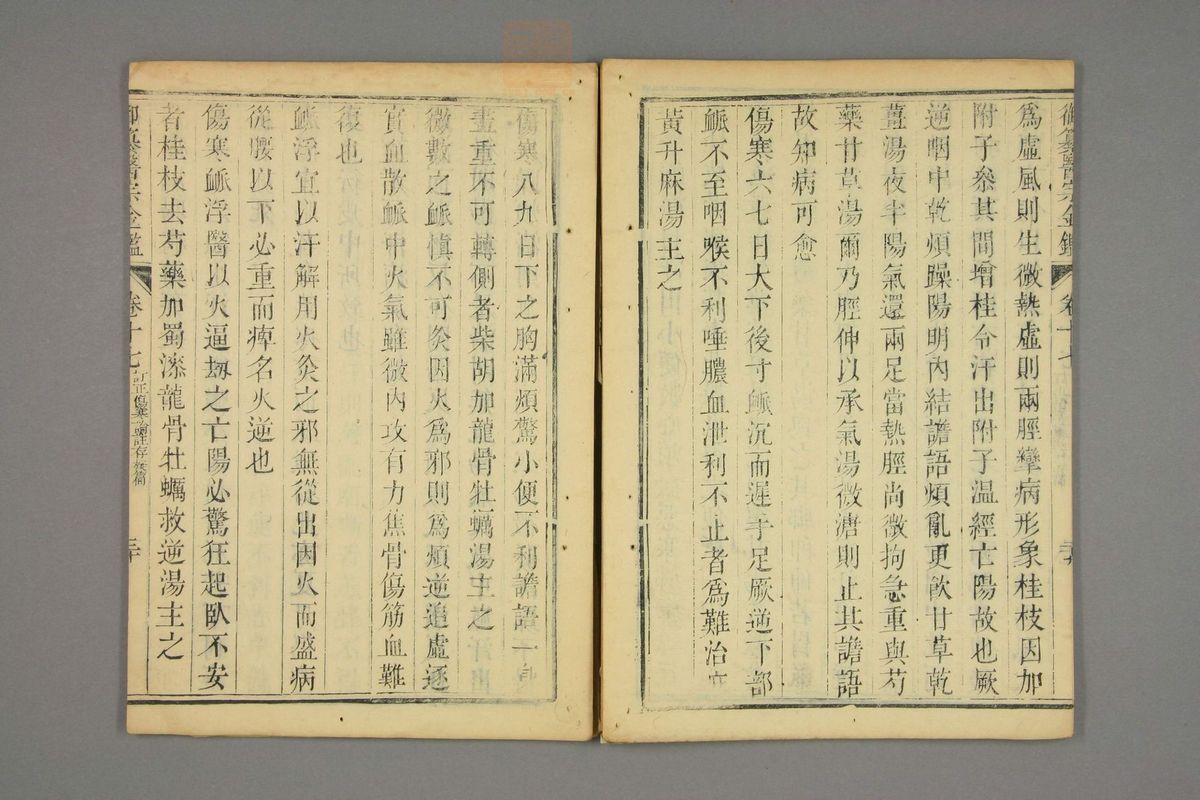 御纂醫宗金鑑 卷十七
為虛風則生微熱虛則兩脛攣病形象桂枝因加
附子叅其間增桂令汗出附子溫經亡陽故也厥
逆咽中乾煩躁陽明內結譫語煩亂更飲甘草乾
薑湯夜半陽氣還兩足當熱脛尚微拘急重與芍
藥甘草湯爾乃脛伸以承氣湯微溏則止其譫語
故知病可愈
傷寒六七日大下後寸脈沉而遲手足厥逆下部
脈不至咽喉不利唾膿血泄利不止者為難治
黃升麻湯主之
傷寒八九日下之胸滿煩驚小便不利譫語一
盡重不可轉側者柴胡加龍骨牡蠣湯主之
微數之脈慎不可灸因火為邪則為煩逆追虛逐
實血散脈中火氣雖微內攻有力焦骨傷筋血難
復也
脈浮宜以汗解用火灸之邪無從出因火而盛病
從腰以下必重而痺名火逆也
傷寒脈浮醫以火逼刼之亡陽必驚狂起臥不安
者桂枝去芍藥加蜀漆龍骨牡蠣救逆湯主之
御纂醫宗金鑑 卷十七 訂正傷寒論註存疑篇 三十